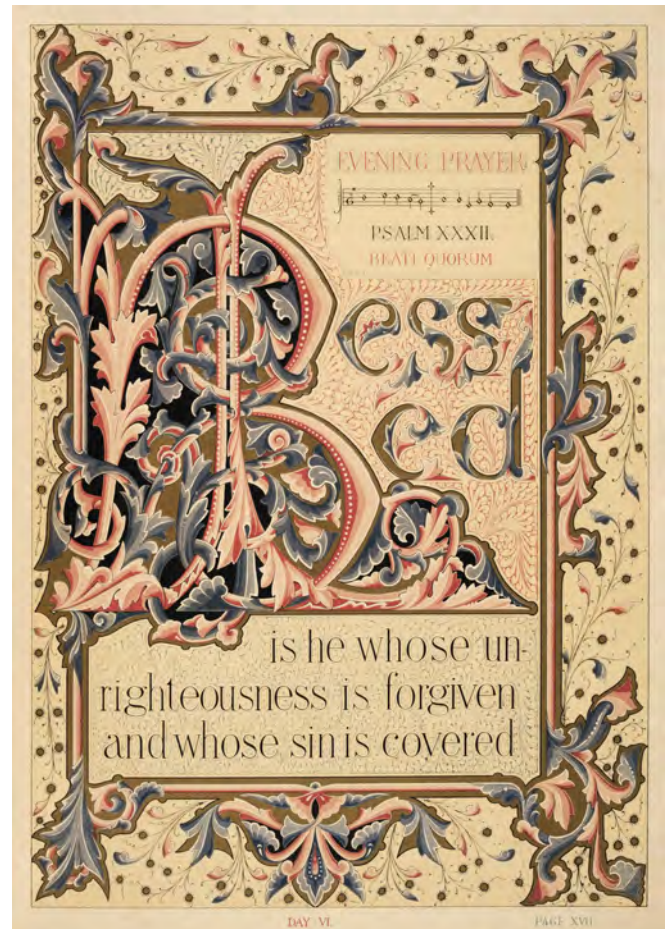 EVENING PRAYER.
PSALM XXXII.
BEATI QUORUM
Bless
ed
is he whose un-
righteousness is forgiven
and whose sin is covered
DAY VI.
PAGE XVII